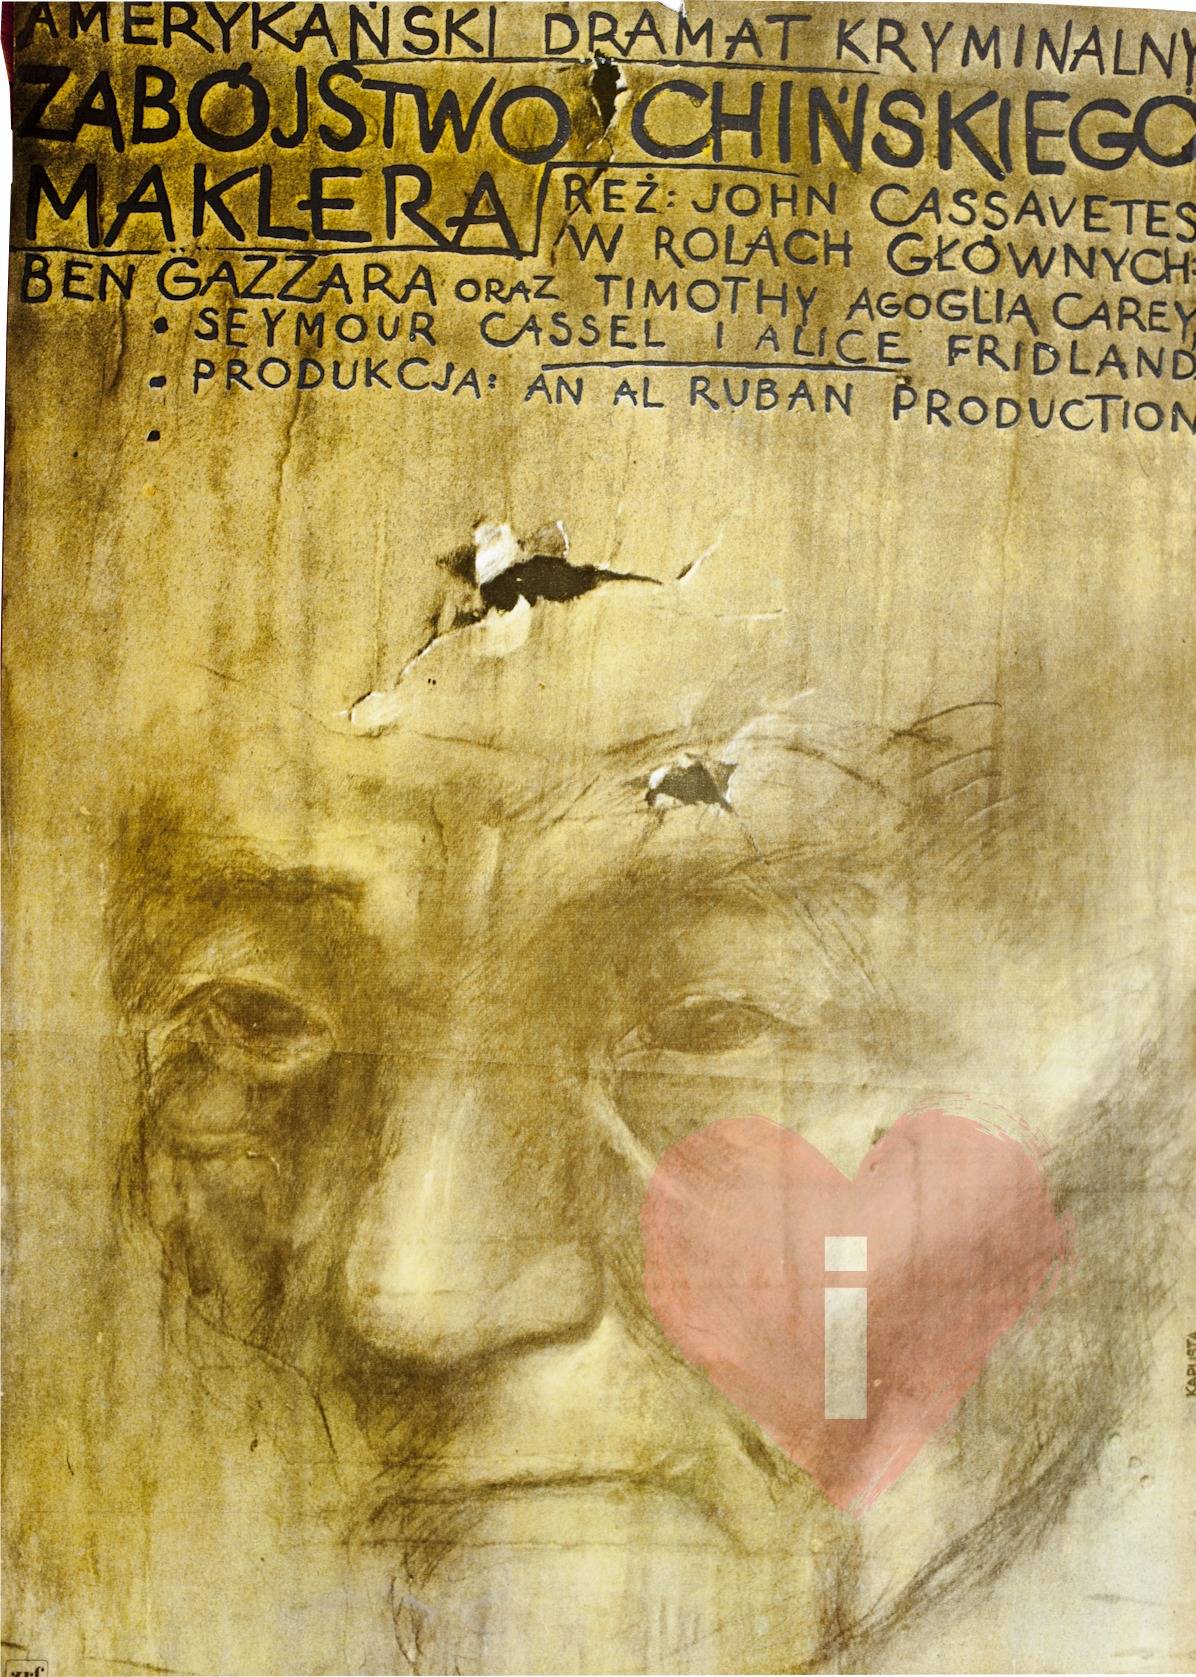 AMERYKAŃSKI DRAMAT KRYMINALNY
ZABÓJSTWO CHIŃSKIEGO
MAKLERA
REŻ: JOHN CASSAVETES
W ROLACH GŁÓWNYCH:
BEN GAZZARA ORAZ TIMOTHY AGOGLIA CAREY
SEYMOUR CASSEL I ALICE FRIDLAND
PRODUKCJA: AN AL RUBAN PRODUCTION
i
zrf